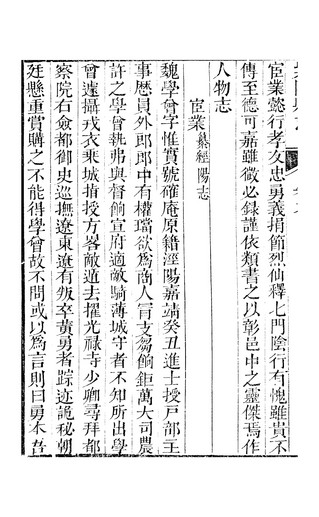 宦業懿行孝友忠勇義捐節烈仙釋七門陰行有愧雖貴不
傳至德可嘉雖微必錄謹依類書之以彰邑中之靈傑焉作
人物志
宦業纂經陽志
魏學曾字惟貫號確庵原籍涇陽嘉靖癸丑進士授戶部主
事歷員外郎郎中有權璫欲為商人冐支芻餉鉅萬大司農
許之學曾執弗與督餉宣府適敵騎薄城守者不知所出學
曾遽攝戎衣乘城指授方畧敵遁去擢光祿寺少卿尋拜都
察院右僉都御史巡撫遼東遼有叛卒黃勇者踪迹詭秘朝
廷懸重賞購之不能得學曾故不問或以為言則曰勇本吾